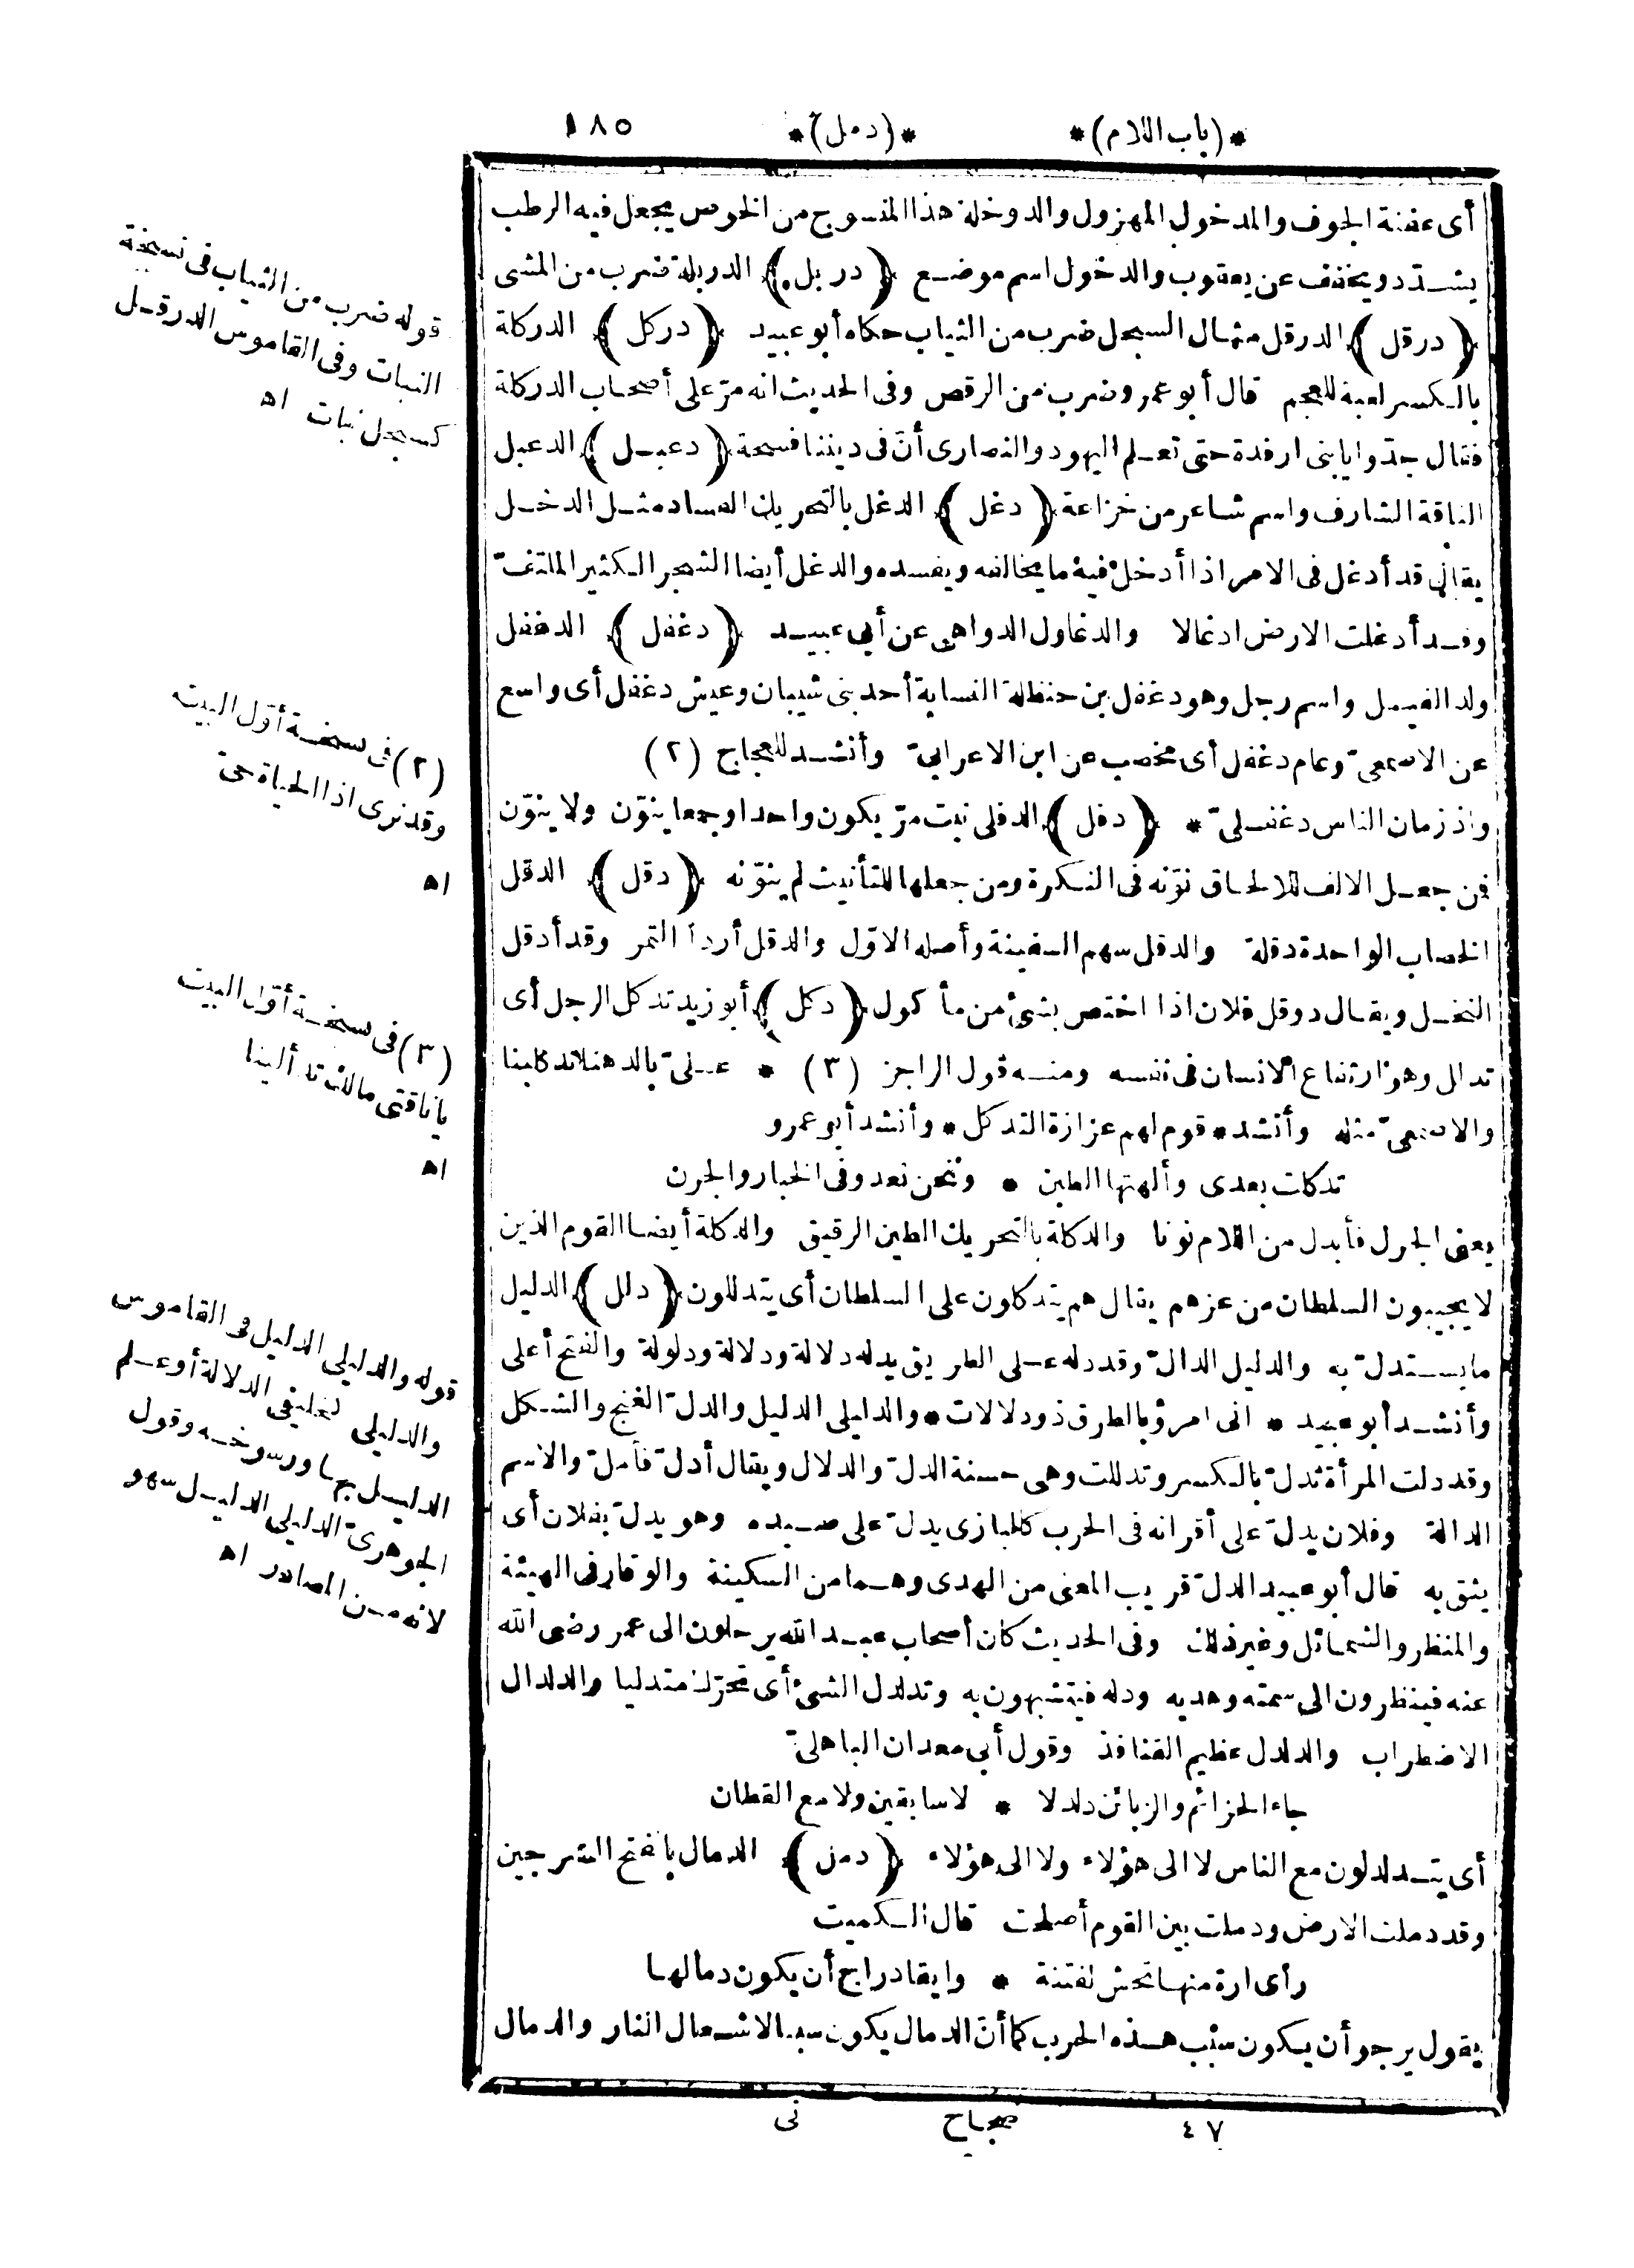 *(باب اللام)* *(دمل)* ١٨٥
أى عفنة الجوف والمدخول المهزول والدوخلة هذا المنسوج من الخوص يجعل فيه الرطب
يشدّد ويخفف عن يعقوب والدخول اسم موضع ﴿دربل﴾ الدربلة ضرب من المشى
﴿درقل﴾ الدرقل مثال السبحل ضرب من الثياب حكاه أبو عبيد ﴿دركل﴾ الدركلة
بالكسر لعبة للعجم قال أبو عمرو ضرب من الرقص وفى الحديث انه مرّ على أصحاب الدركلة
فقال جدّوا يابنى ارفدة حتى تعلم اليهود والنصارى أنّ فى ديننا فسحة ﴿دعبل﴾ الدعبل
الناقة الشارف واسم شاعر من خزاعة ﴿دغل﴾ الدغل بالتحريك الفساد مثل الدخل
يقال قد أدغل فى الامر اذا أدخل فيه ما يخالفه ويفسده والدغل أيضا الشجر الكثير الملتفّ
وقد أدغلت الارض ادغالا والدغاول الدواهى عن أبى عبيد ﴿دغفل﴾ الدغفل
ولد الفيل واسم رجل وهو دغفل بن حنظلة النسابة أحد بنى شيبان وعيش دغفل أى واسع
عن الاصمعىّ وعام دغفل أى مخصب عن ابن الاعرابىّ وأنشد للعجاج (٢)
واذ زمان الناس دغفلىّ * ﴿دفل﴾ الدفلى نبت مرّ يكون واحدا وجمعا ينوّن ولا ينوّن
فمن جعل الالف للالحاق نوّنه فى النكرة ومن جعلها للتأنيث لم ينوّنه ﴿دقل﴾ الدقل
الخصاب الواحدة دقلة والدقل سهم السفينة وأصله الاوّل والدقل أردأ التمر وقد أدقل
النخل ويقال دوقل فلان اذا اختص بشئ من مأكول ﴿دكل﴾ أبو زيد تدكل الرجل أى
تدال وهو ارتفاع الانسان فى نفسه ومنه قول الراجز (٣) * علىّ بالدهنا تدكلينا
والاصمعىّ مثله وأنشد * قوم لهم عزازة التدكل * وأنشد أبو عمرو
تدكلت بعدى وألهتها الطبن * ونحن نعدو فى الخبار والجرن
يعنى الجرل فأبدل من اللام نونا والدكلة بالتحريك الطين الرقيق والدكلة أيضا القوم الذين
لا يجيبون السلطان من عزهم يقال هم يتدكلون على السلطان أى يتدللون ﴿دلل﴾ الدليل
ما يستدلّ به والدليل الدالّ وقد دله على الطريق يدله دلالة ودلالة ودلولة والفتح أعلى
وأنشد أبو عبيد * انى امرؤ بالطرق ذو دلالات * والدليلى الدليل والدلّ الغنج والشكل
وقد دلت المرأة تدلّ بالكسر وتدللت وهى حسنة الدلّ والدلال ويقال أدلّ فأملّ والاسم
الدالة وفلان يدلّ على أقرانه فى الحرب كالبازى يدلّ على صيده وهو يدلّ بفلان أى
يثق به قال أبو عبيد الدلّ قريب المعنى من الهدى وهما من السكينة والوقار فى الهيئة
والمنظر والشمائل وغير ذلك وفى الحديث كان أصحاب عبد الله يرحلون الى عمر رضى الله
عنه فينظرون الى سمته وهديه ودله فيتشبهون به وتدلدل الشئ أى تحرّك متدليا والدلدال
الاضطراب والدلدل عظيم القنافذ وقول أبى معدان الباهلىّ
جاء الحزائم والزبائن دلدلا * لا سابقين ولا مع القطان
أى يتدلدلون مع الناس لا الى هؤلاء ولا الى هؤلاء ﴿دمل﴾ الدمال بالفتح السرجين
وقد دملت الارض ودملت بين القوم أصلحت قال الكميت
رأى ارة منها تحش لفتنة * وايقاد راج أن يكون دمالها
يقول يرجو أن يكون سبب هذه الحرب كما أنّ الدمال يكون سببا لاشعال النار والدمال
٤٧ صحاح نى
قوله ضرب من الثياب فى نسخة
النبات وفى القاموس الدرقل
كسبحل نبات اه
(٢) فى نسخة أوّل البيت
وقد نرى اذ الحياة حىّ
اه
(٣) فى نسخة أوّل البيت
يا ناقتى مالك تدألينا
اه
قوله والدليلى الدليل فى القاموس
والدليلى كخليفى الدلالة أو علم
الدليل بها ورسوخه وقول
الجوهرىّ الدليلى الدليل سهو
لانه من المصادر اه